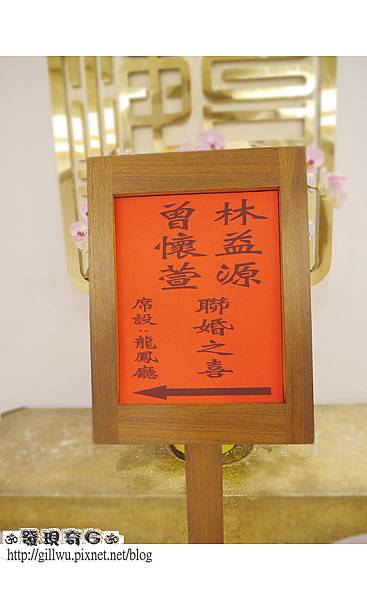 林益源
曾懷萱
聯婚之喜
席設:龍鳳廳
發現奇G
http://gillwu.pixnet.net/blog